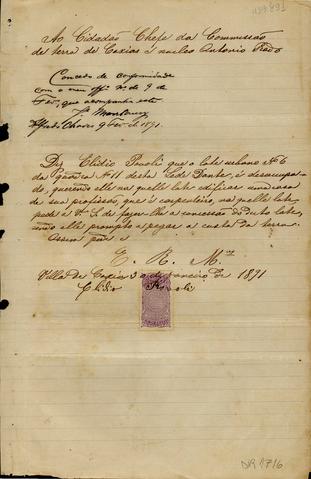 Ao Cidadão Chefe da Commissão
de terra de Caxias e nucleo Antonio Prado
Concedo de conformidade
com o meu off.º nº de 9 de
Fev., que acompanha este
Alfredo Chaves 9 Fev. de 1891.
Diz Elidio Paroli que o lote urbano nº 6
da quadra nº 11 desta Sede Dante, é desocupado,
querendo elle na quelle lote edificar
de sua profissão, que é carpinteiro, na quelle lote
pede a Vª Sª de fazer-lhe a concessão do dito lote,
elle prompto a pagar a custa da terra.
E. R. M.ce
Villa de Caxias 30 de Janeiro de 1891
Elidio Paroli
DR 1716